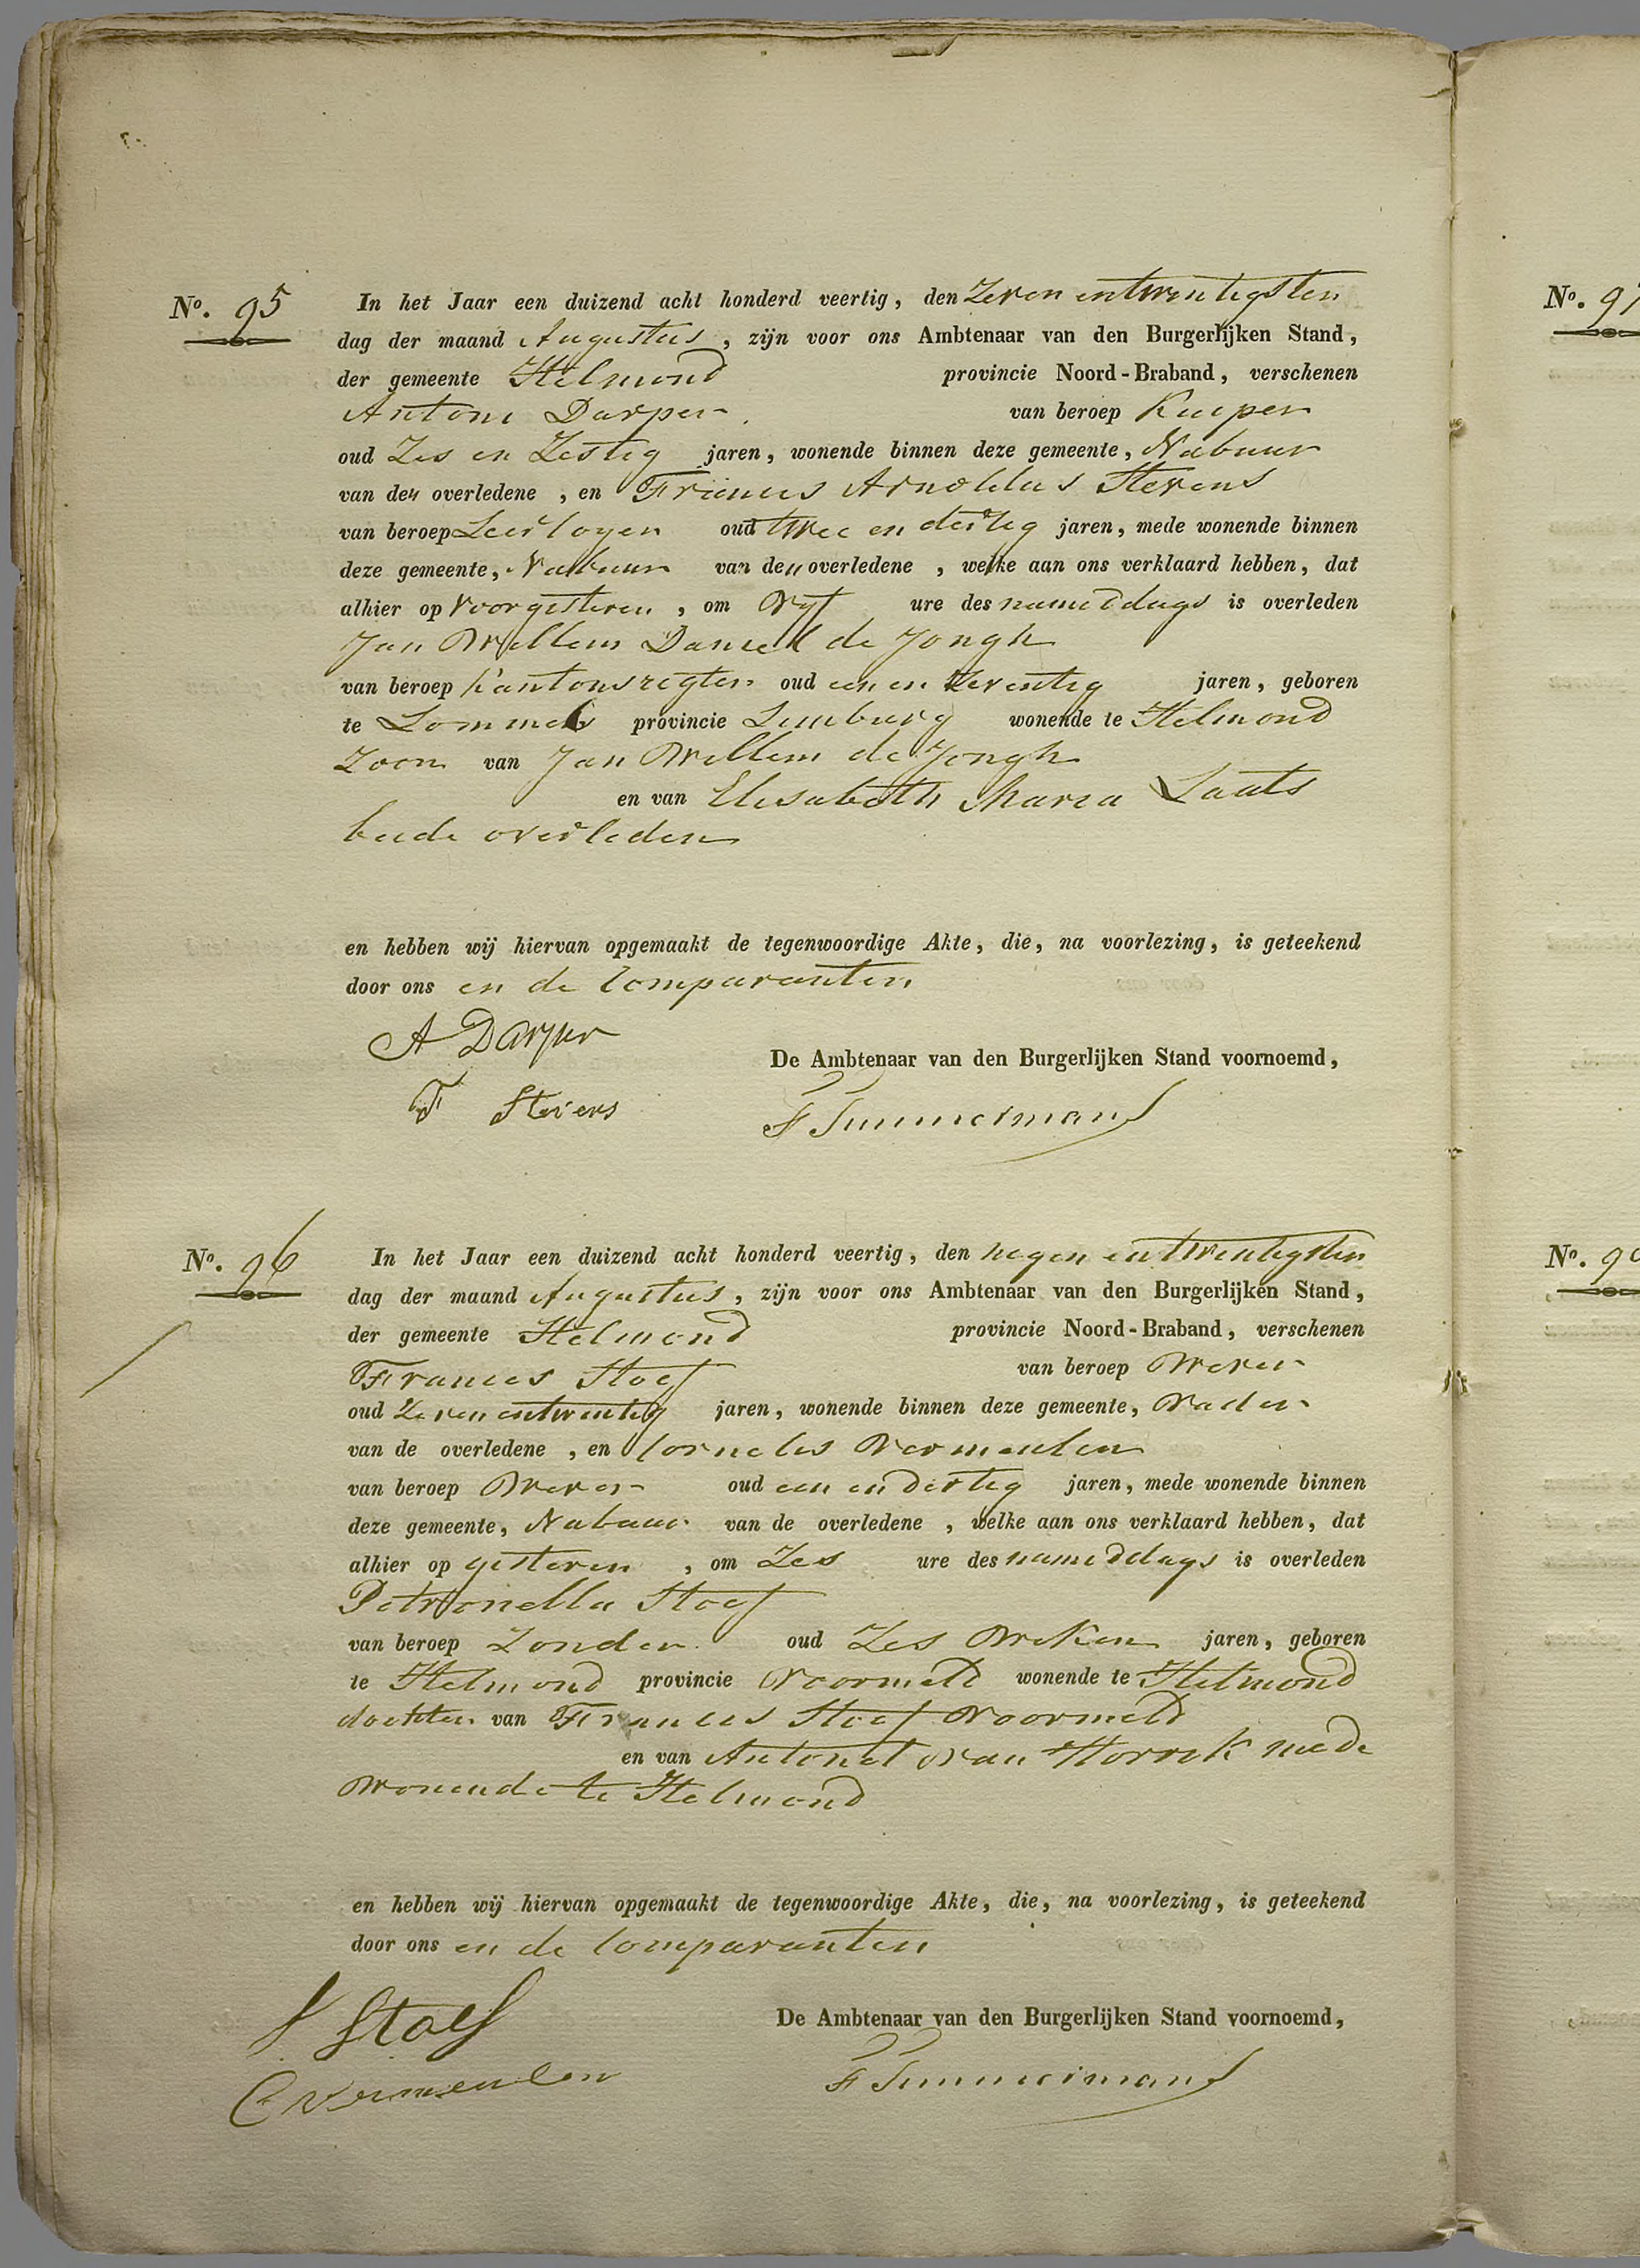 No. 95
In het Jaar een duizend acht honderd veertig, den Zeven entwintigsten
dag der maand Augustus, zijn voor ons Ambtenaar van den Burgerlijken Stand,
der gemeente Helmond provincie Noord-Braband, verschenen
Antoni Darper van beroep Kuiper
oud Zes en Zestig jaren, wonende binnen deze gemeente, Nabuur
van den overledene, en Francis Arnoldus Stevens
van beroep Leerloyer oud twee en dertig jaren, mede wonende binnen
deze gemeente, Nabuur van den overledene, welke aan ons verklaard hebben, dat
alhier op voorgisteren, om Vyf ure des namiddags is overleden
Jan Willem Daniel de Jongh
van beroep Kantonsregter oud een en Zeventig jaren, geboren
te Lommel provincie Limburg wonende te Helmond
Zoon van Jan Willem de Jongh
en van Elisabeth Maria Laats
beide overleden
en hebben wij hiervan opgemaakt de tegenwoordige Akte, die, na voorlezing, is geteekend
door ons en de Comparanten
A Darper
De Ambtenaar van den Burgerlijken Stand voornoemd,
F Stevens
F Timmermans
No. 96
In het Jaar een duizend acht honderd veertig, den negen entwintigsten
dag der maand Augustus, zijn voor ons Ambtenaar van den Burgerlijken Stand,
der gemeente Helmond provincie Noord-Braband, verschenen
Francis Stoef van beroep Wever
oud Zeven entwintig jaren, wonende binnen deze gemeente, Vader
van de overledene, en Cornelis Vermeulen
van beroep Wever oud een en dertig jaren, mede wonende binnen
deze gemeente, Nabuur van de overledene, welke aan ons verklaard hebben, dat
alhier op gisteren, om Zes ure des namiddags is overleden
Petronella Stoef
van beroep Zonder oud Zes Weken jaren, geboren
te Helmond provincie Voormeld wonende te Helmond
dochter van Francis Stoef Voormeld
en van Antonet van Horrik mede
wonende te Helmond
en hebben wij hiervan opgemaakt de tegenwoordige Akte, die, na voorlezing, is geteekend
door ons en de Comparanten
F Stoef
De Ambtenaar van den Burgerlijken Stand voornoemd,
C vermeulen
F Timmermans
No. 97
No.